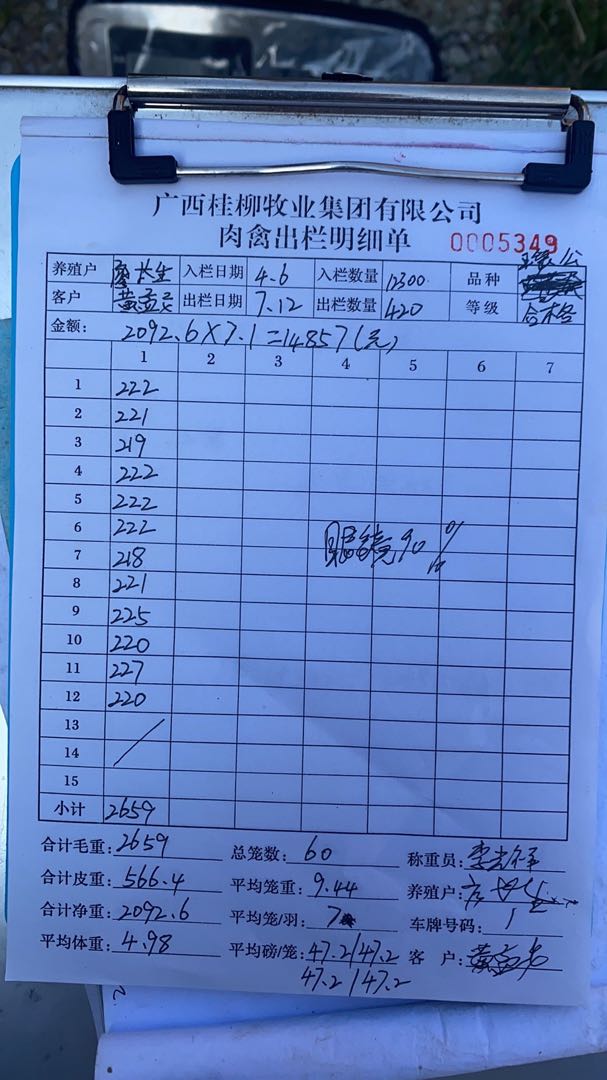 广西桂柳牧业集团有限公司
肉禽出栏明细单 0005349
养殖户 廖长生 入栏日期 4.6 入栏数量 12300 品种
客户 出栏日期 7.12 出栏数量 420 等级 合格
金额: 2092.6×7.1=14857(元)
1 2 3 4 5 6 7
1 222
2 221
3 219
4 222
5 222
6 222 眼镜90%
7 218
8 221
9 225
10 220
11 227
12 220
13
14
15
小计 2659
合计毛重: 2659 总笼数: 60 称重员:
合计皮重: 566.4 平均笼重: 9.44 养殖户:
合计净重: 2092.6 平均笼/羽: 7 车牌号码: 1
平均体重: 4.98 平均磅/笼: 47.2/47.2 客户:
47.2/47.2